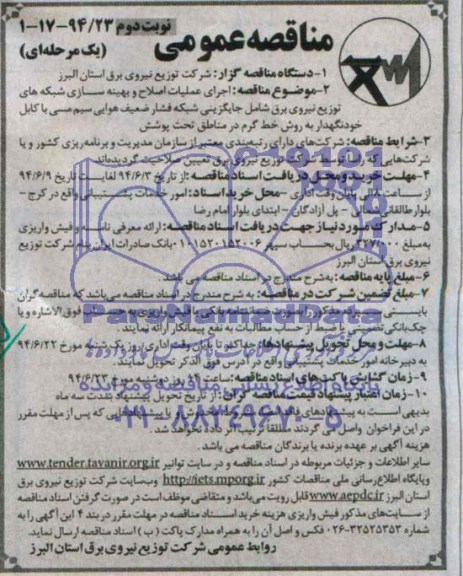 نوبت دوم ۹۴/۲۳-۱۷-۱
مناقصه عمومی (یک مرحله‌ای)
۱-دستگاه مناقصه گزار: شرکت توزیع نیروی برق استان البرز
۲-موضوع مناقصه: اجرای عملیات اصلاح و بهینه سازی شبکه های
توزیع نیروی برق شامل جایگزینی شبکه فشار ضعیف هوایی سیم مسی با کابل
خودنگهدار به روش خط گرم در مناطق تحت پوشش
۳-شرایط مناقصه: شرکت‌های دارای رتبه‌بندی معتبر از سازمان مدیریت و برنامه‌ریزی کشور و یا
شرکت‌هایی که توسط شرکت توزیع نیروی برق تعیین صلاحیت گردیده‌اند.
۴-مهلت خرید و محل دریافت اسناد مناقصه: از تاریخ ۹۴/۶/۳ لغایت تاریخ ۹۴/۶/۹
از ساعت ۸ الی پایان وقت اداری - محل خرید اسناد: امور خدمات پشتیبانی واقع در کرج -
بلوار طالقانی شمالی - پل آزادگان - ابتدای بلوار امام رضا
۵-مدارک مورد نیاز جهت دریافت اسناد مناقصه: ارائه معرفی نامه و فیش واریزی
به مبلغ ۳۲۷/۰۰۰ ریال بحساب سپهر ۰۱۰۱۵۲۰۱۵۲۰۰۶ بانک صادرات ایران بنام شرکت توزیع
نیروی برق استان البرز
۶-مبلغ پایه مناقصه: به شرح مندرج در اسناد مناقصه می باشد.
۷-مبلغ تضمین شرکت در مناقصه: به شرح مندرج در اسناد مناقصه می‌باشد که مناقصه‌گران
بایستی فوق‌الاشاره و یا
چک بانکی تضمینی یا ضبط از حساب مطالبات به نفع پیمانکار ارائه نمایند.
۸-مهلت و محل تحویل پیشنهادها: حداکثر تا پایان وقت اداری روز یک‌شنبه مورخ ۹۴/۶/۲۲
به دبیرخانه امور خدمات پشتیبانی واقع در آدرس فوق الذکر تحویل نمایند.
۹-زمان گشایش پاکت‌های اسناد مناقصه: ساعت ۱۴ روز مورخ ۹۴/۶/۲۳
۱۰-زمان اعتبار پیشنهاد قیمت مناقصه گران: از تاریخ تحویل پیشنهاد بمدت سه ماه
بدیهی است به پیشنهادهای که پس از مهلت مقرر
در این فراخوان واصل می گردند مطلقاً ترتیب اثر داده نخواهد شد.
هزینه آگهی بر عهده برنده یا برندگان مناقصه می باشد.
سایر اطلاعات و جزئیات مربوطه در اسناد مناقصه و در سایت توانیر www.tender.tavanir.org.ir
وپایگاه اطلاع‌رسانی ملی مناقصات کشور http://iets.mporg.ir وب‌سایت شرکت توزیع نیروی برق
استان البرز www.aepdc.ir قابل رویت می‌باشد و متقاضی موظف است در صورت گرفتن اسناد مناقصه
از سایت‌های مذکور فیش واریزی هزینه خرید اسناد مناقصه در مهلت مقرر در بند ۴ این آگهی را به
شماره ۳۲۵۲۵۳۵۳-۰۲۶ فکس و اصل آن را به همراه مدارک پاکت (ب) اسناد مناقصه ارسال نماید.
روابط عمومی شرکت توزیع نیروی برق استان البرز
ParsNamadData
پایگاه اطلاع رسانی مناقصه و مزایده
۰۲۱-۸۸۳۴۹۶۷۰-۵